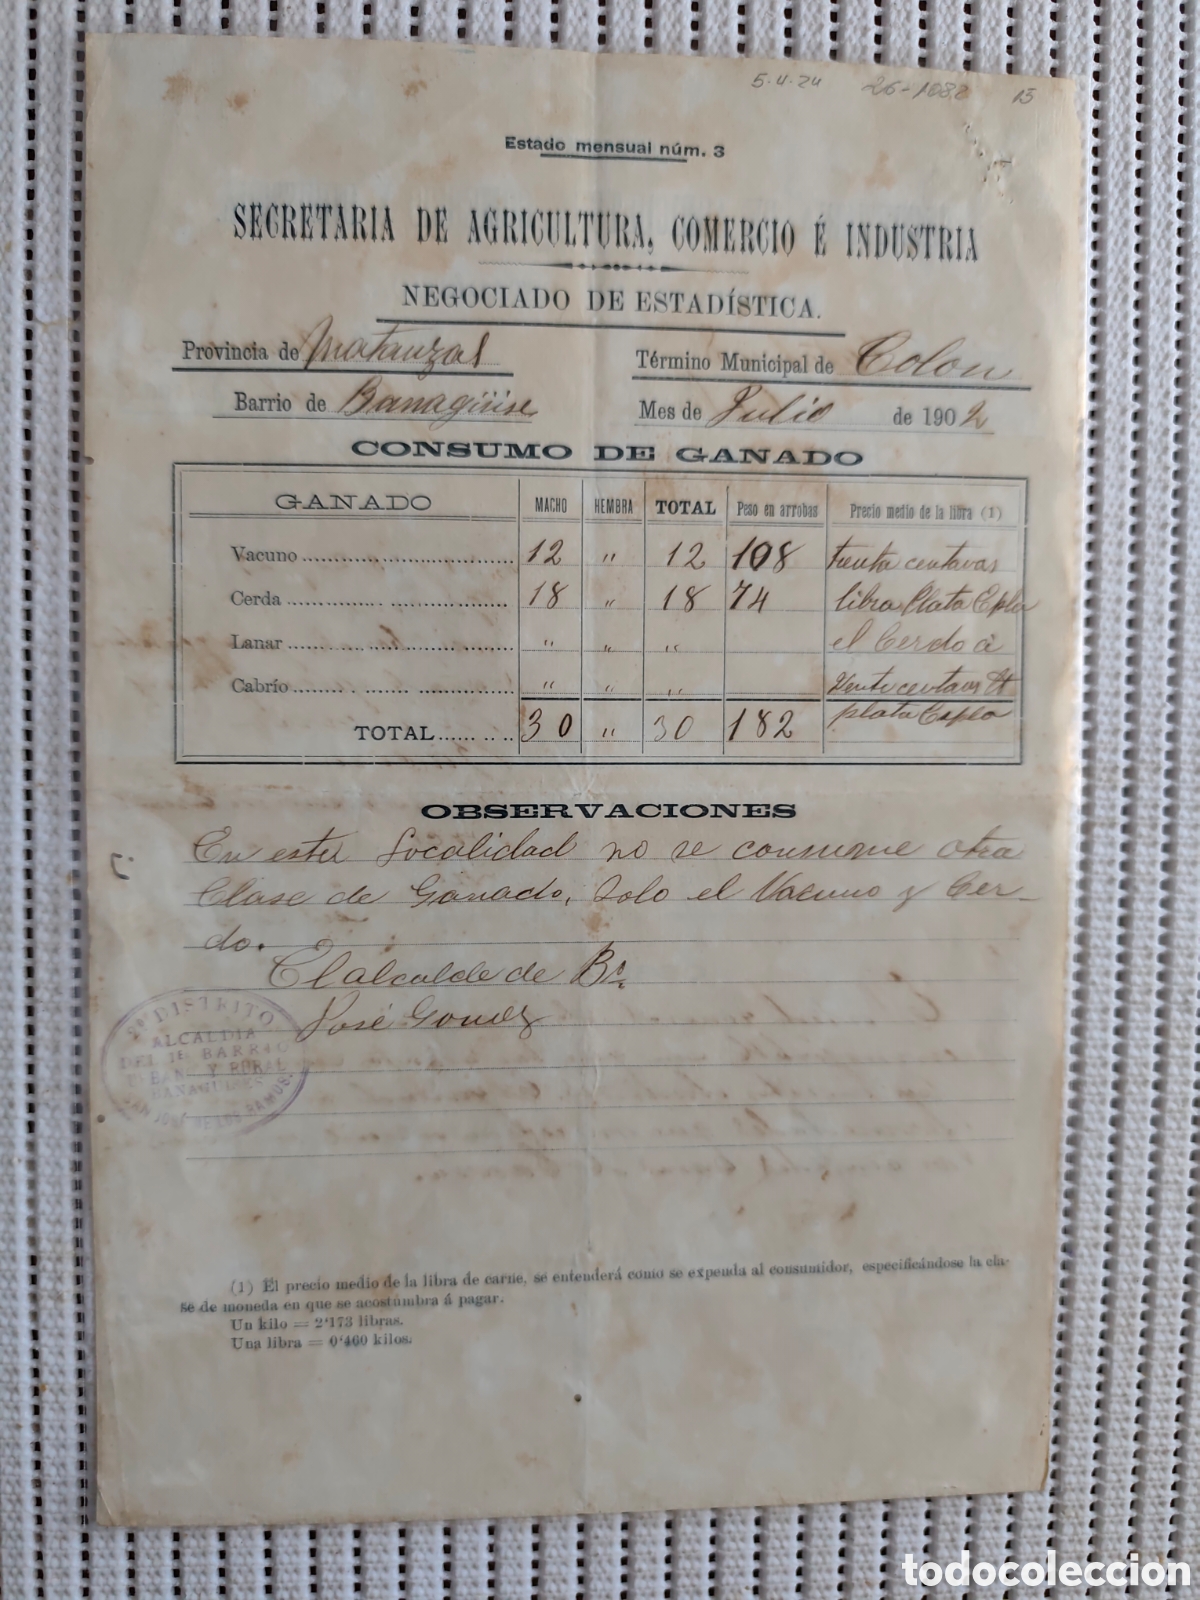 5-4-24 26-1088 15
Estado mensual núm. 3
SECRETARIA DE AGRICULTURA, COMERCIO É INDUSTRIA
NEGOCIADO DE ESTADÍSTICA.
Provincia de Matanzas Término Municipal de Colon
Barrio de Banagüise Mes de Julio de 1902
CONSUMO DE GANADO
GANADO MACHO HEMBRA TOTAL Peso en arrobas Precio medio de la libra (1)
Vacuno 12 " 12 108 trenta centavos
Cerda 18 " 18 74 libra Plata Espla
Lanar " " " el Cerdo à
Cabrío " " " Vente centavos lt
TOTAL 30 " 30 182 plata Espla
OBSERVACIONES
En esta Localidad no se consume otra
Clase de Ganado, Solo el Vacuno y Cer-
do.
El alcalde de Bo.
José Gomez
2º DISTRITO
ALCALDIA
DEL 1er BARRIO
URBANO Y RURAL
BANAGUISES
SAN JOSÉ DE LOS RAMOS.
(1) El precio medio de la libra de carne, se entenderá como se expenda al consumidor, especificándose la cla-
se de moneda en que se acostumbra á pagar.
Un kilo = 2'173 libras.
Una libra = 0'460 kilos.
todocoleccion